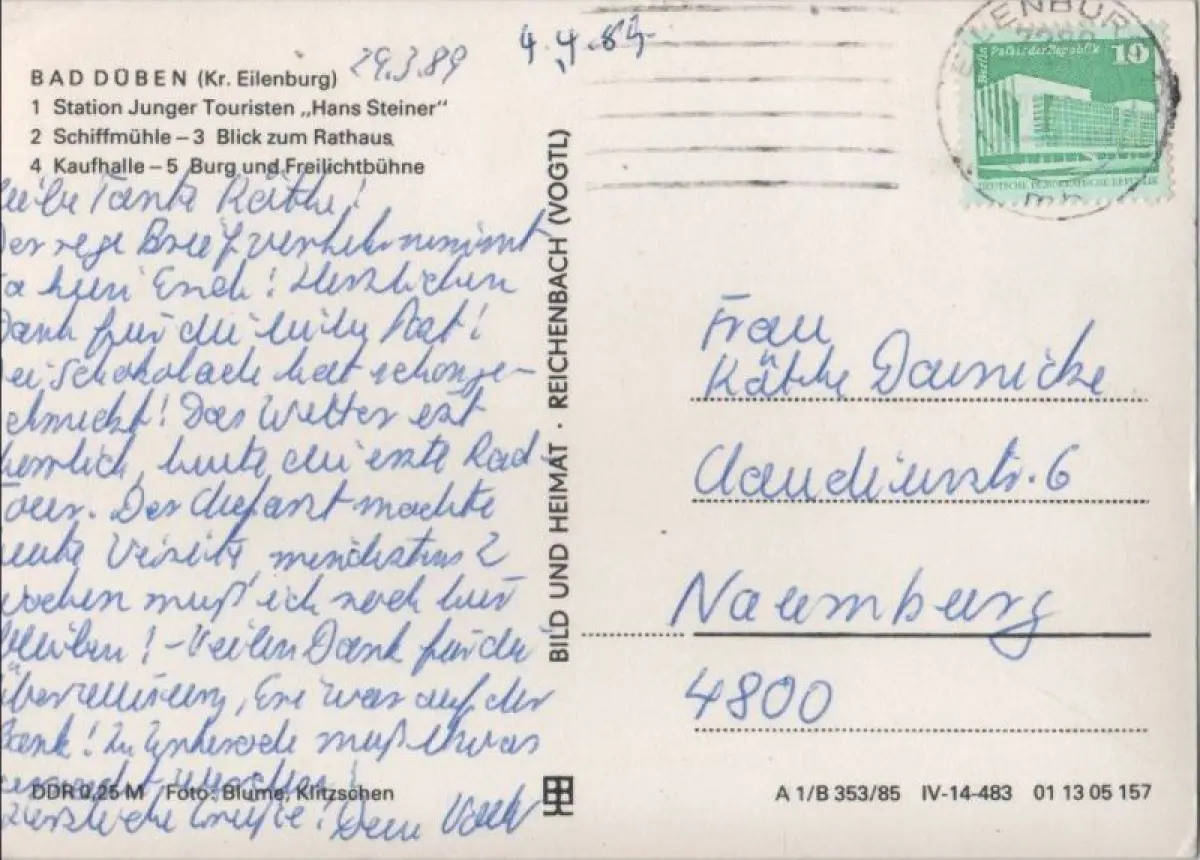 BAD DÜBEN (Kr. Eilenburg)
1 Station Junger Touristen „Hans Steiner"
2 Schiffmühle – 3 Blick zum Rathaus
4 Kaufhalle – 5 Burg und Freilichtbühne
29.3.89
4.4.89
Liebe Tante Käthe!
Der rege Briefverkehr nimmt
ja kein Ende! Herzlichen
Dank für die liebe Post!
Die Schokolade hat schon ge-
schmeckt! Das Wetter ist
herrlich, heute die erste Rad-
tour. Der Chefarzt machte
heute Visite, mindestens 2
Wochen muß ich noch hier
bleiben! – Vielen Dank für die
Überweisung, Eve war auf der
Bank! In muß etwas
gemacht werden!
Herzliche Grüße! Dein
DDR 0,25 M Foto: Blume, Klitzschen
BILD UND HEIMAT · REICHENBACH (VOGTL)
EILENBURG
7280
mb
Berlin Palast der Republik 10
DEUTSCHE DEMOKRATISCHE REPUBLIK
Frau
Käthe Dainicke
Claudiusstr. 6
Naumburg
4800
A 1/B 353/85 IV-14-483 01 13 05 157